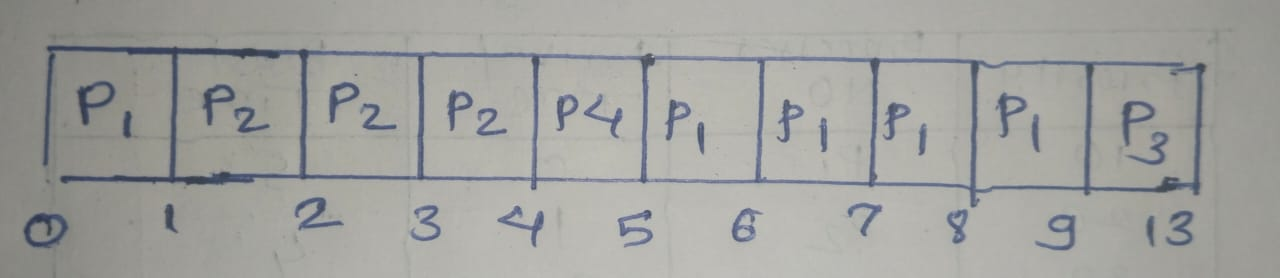 P1 P2 P2 P2 P4 P1 P1 P1 P1 P3
0 1 2 3 4 5 6 7 8 9 13